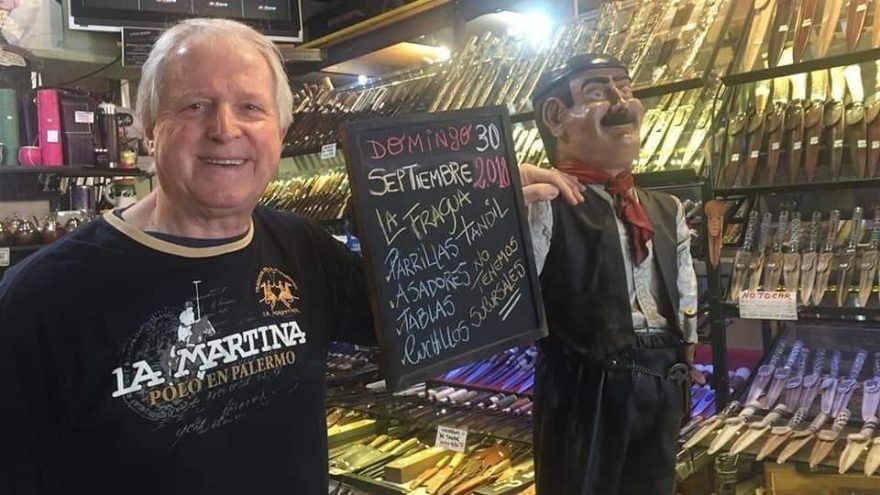 DOMINGO 30
SEPTIEMBRE 2018
LA FRAGUA
TANDIL
PARRILLAS
ASADORES
TABLAS
CUCHILLOS
NO
TENEMOS
SUCURSALES
LA MARTINA
LA MARTINA
POLO EN PALERMO
NO TOCAR